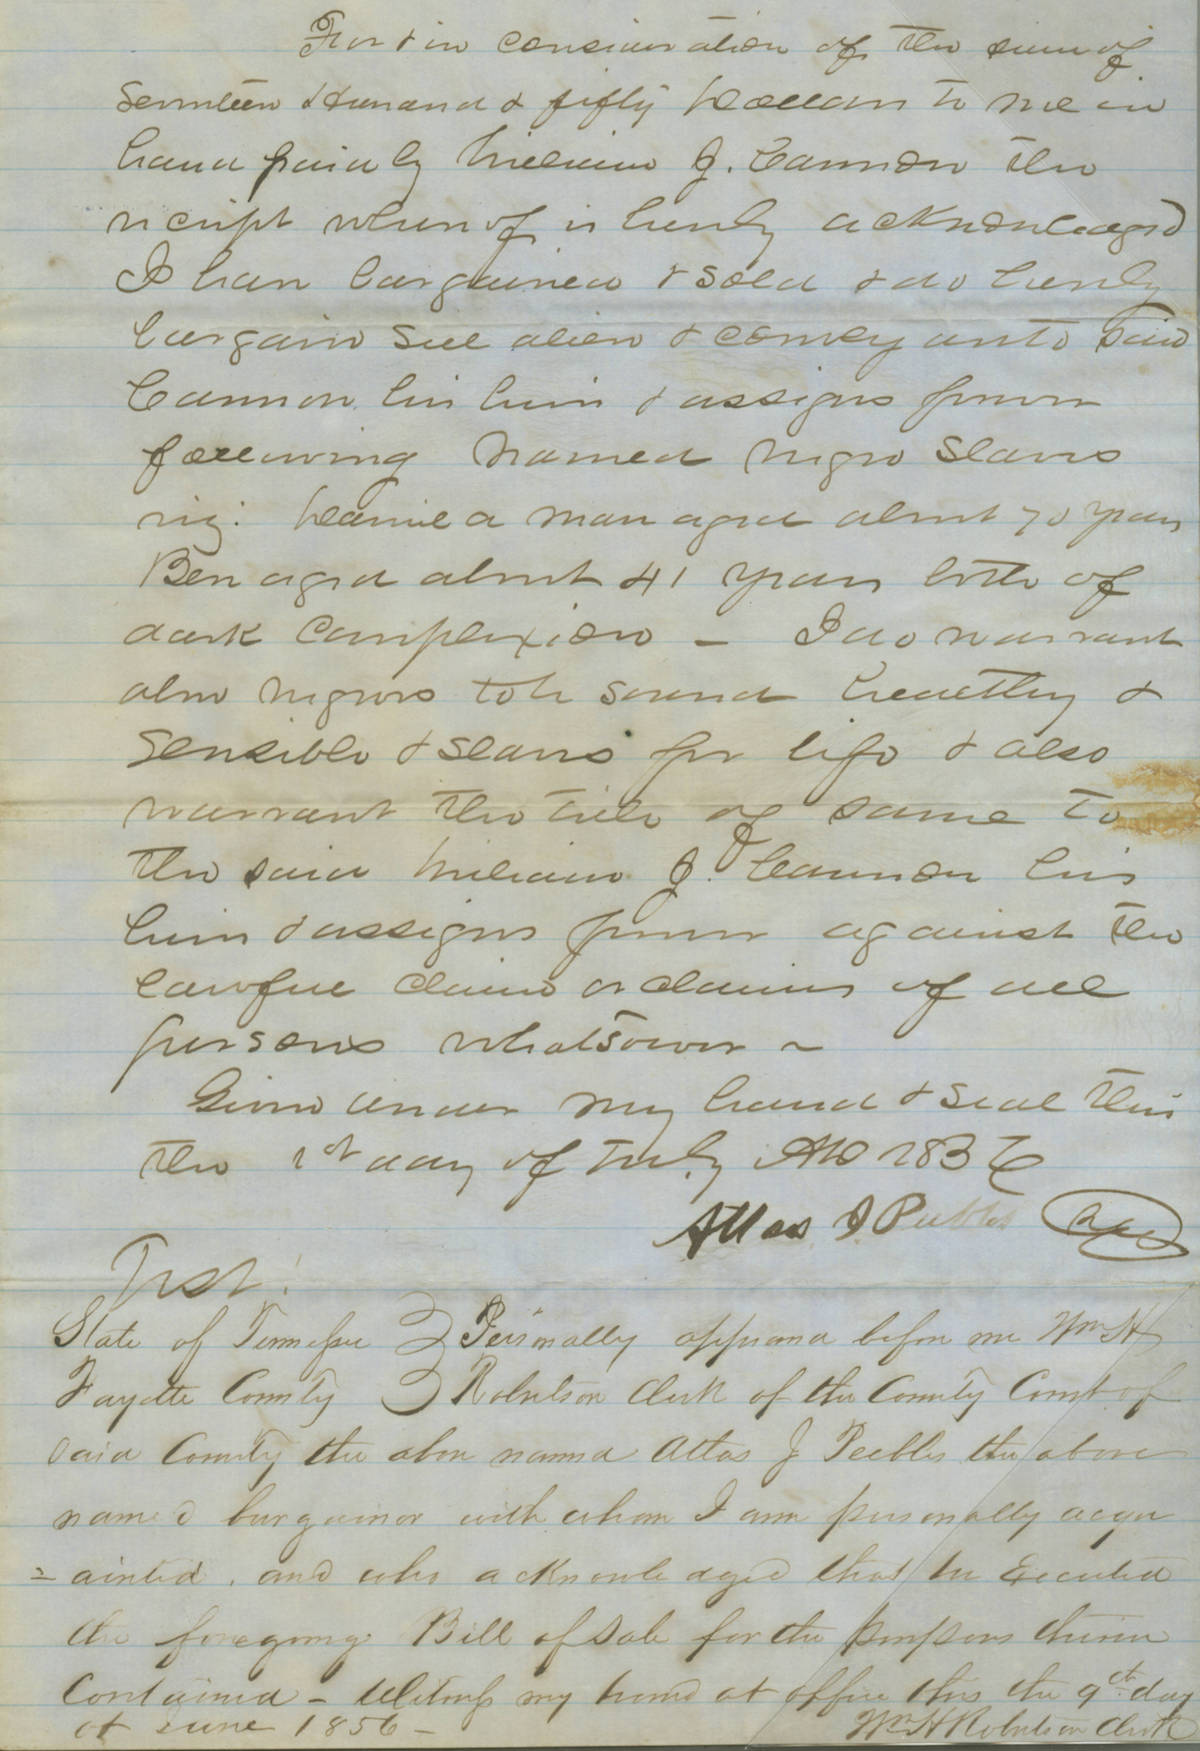 For & in consideration of the sum of
Seventeen Hundred & fifty Dollars to me in
hand paid by William J. Cannon the
receipt whereof is hereby acknowledged
I have bargained & sold & do hereby
bargain sell alien & convey unto said
Cannon his heirs & assigns forever
following named negro slaves
viz: a man aged about 70 years
Ben aged about 41 years both of
dark complexion – I do warrant
above negroes to be sound healthy &
sensible & slaves for life & also
warrant the title of same to
the said William J. Cannon his
heirs & assigns forever against the
lawful claim or claims of all
persons whatsoever ~
Given under my hand & seal this
the 1st day of AD 1856
Atlas J Peebles Seal
Test!
State of Tennessee } Personally appeared before me Wm H
Fayette County } Robertson Clerk of the County Court of
Said County the above named Atlas J Peebles the above
named bargainor with whom I am personally acqu
=ainted. and who acknowledged that he Executed
the foregoing Bill of Sale for the purposes therein
Contained – Witness my hand at office this the 9th day
of June 1856 –
Wm H Robertson Clerk